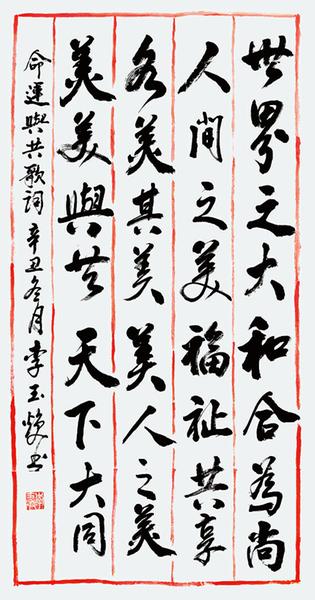 世界之大和合為尚
人間之美福祉共享
各美其美美人之美
美美與共天下大同
命運與共歌詞 辛丑冬月 李玉书